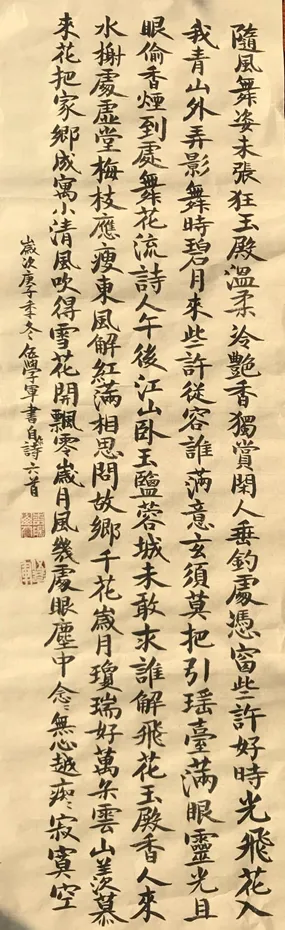 隨風舞姿未張狂玉殿溫柔冷艷香獨賞閑人垂釣處憑窗些許好時光飛花入
我青山外弄影舞時碧月來些許從容誰滿意玄須莫把引瑶臺滿眼靈光且
眼偷香煙到處舞花流詩人午後江山卧玉鹽蓉城未敢求誰解飛花玉殿香人來
水榭處虛堂梅枝應瘦東風解紅滿相思問故鄉千花歲月瓊瑞好萬朵雲山羨慕
來花把家鄉成寓小清風吹得雪花開飄零歲月風幾處眼塵中念念無心越疼疼寂寞空
歲次庚子季冬伍學軍書自詩六首